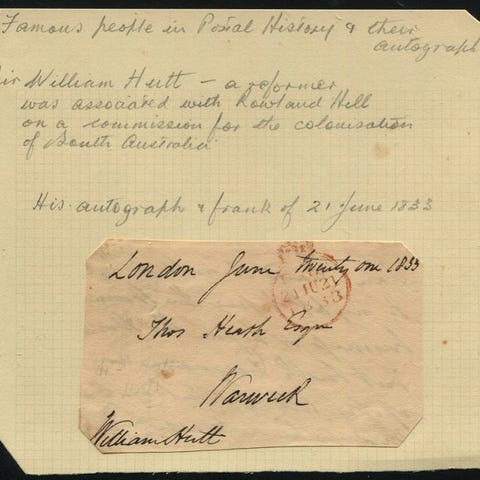 Famous people in Postal History & their
autograph
Sir William Hutt – a reformer
was associated with Rowland Hill
on a commission for the colonisation
of South Australia
His autograph & frank of 21 June 1833
London June twenty one 1833
21 JU 21
1833
Thos Heath Esqre
Warwick
William Hutt